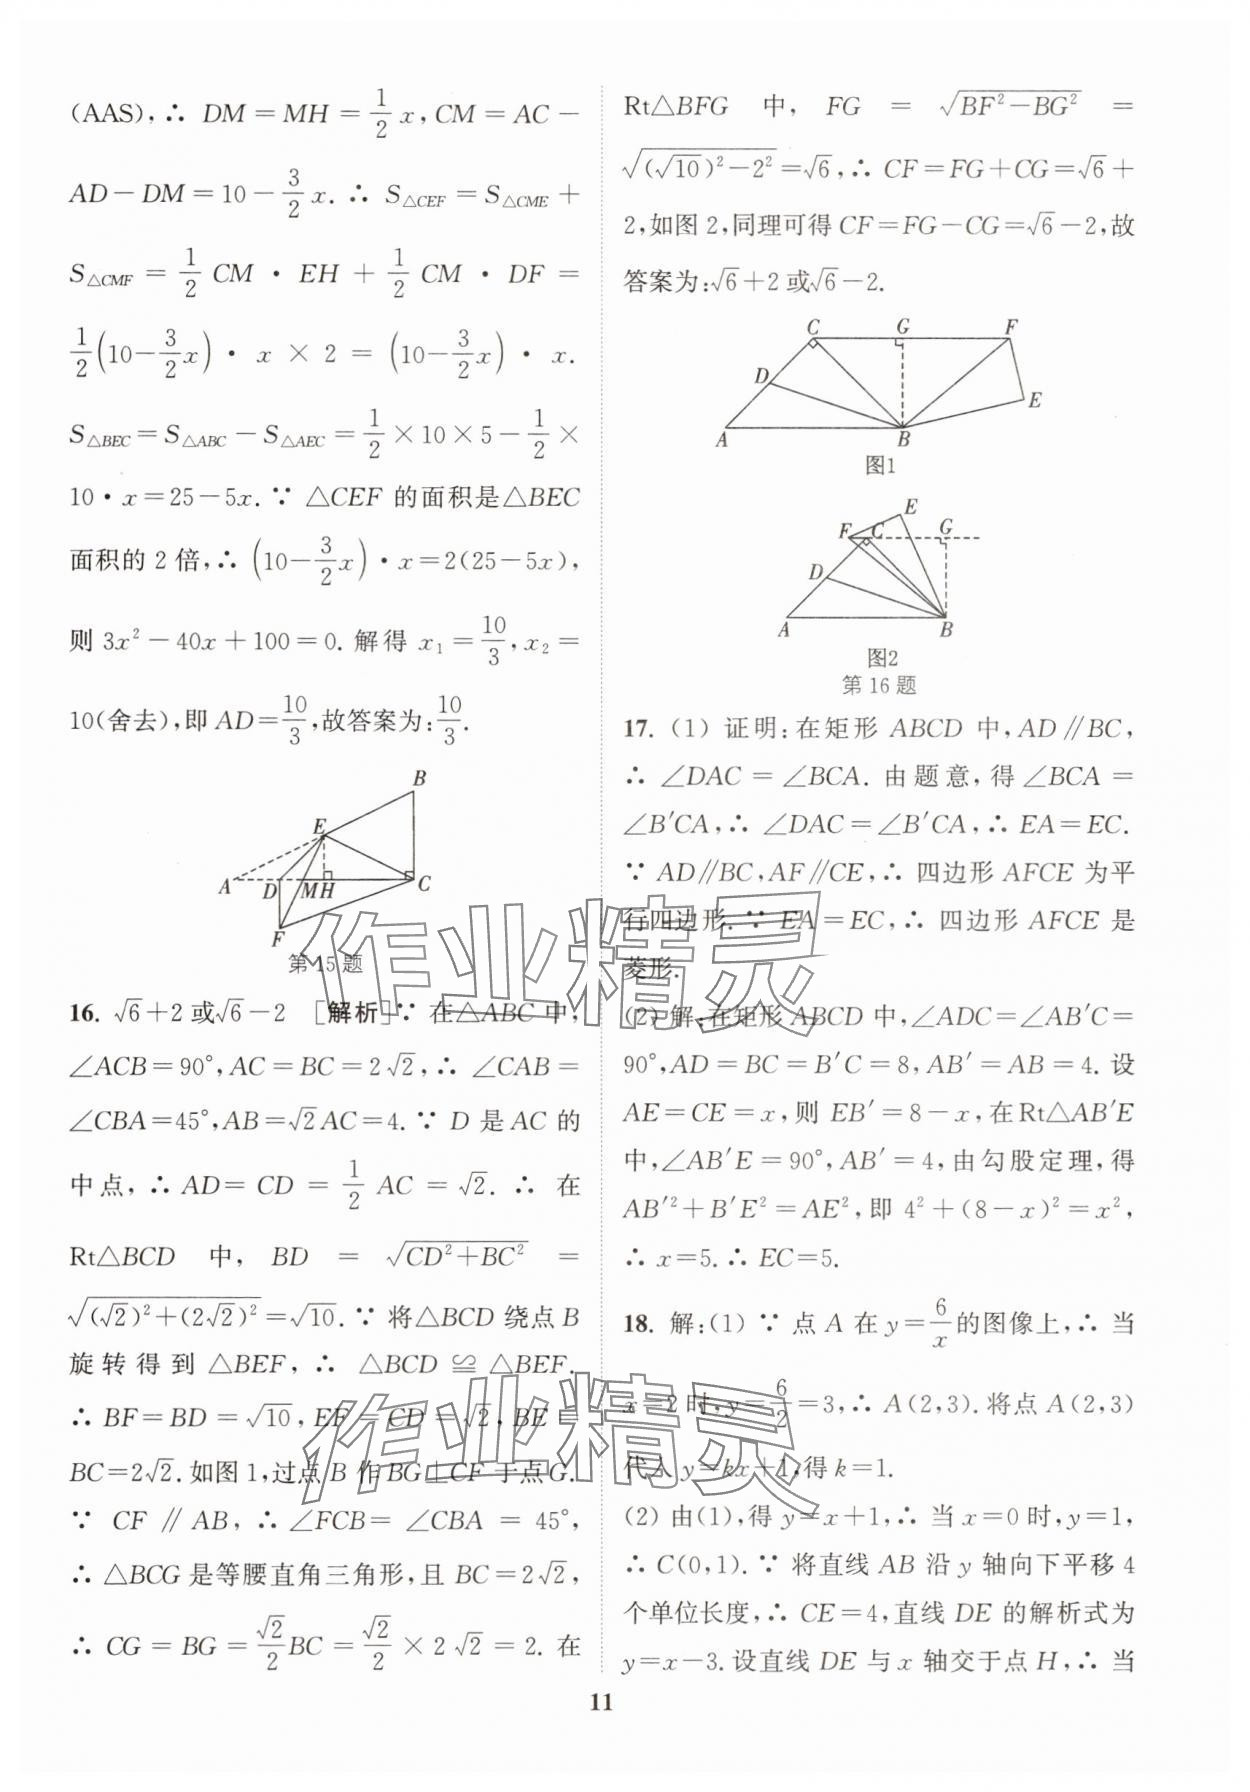 (AAS),∴ DM=MH=1/2 x,CM=AC-
AD-DM=10-3/2 x. ∴ S△CEF=S△CME+
S△CMF=1/2 CM·EH+1/2 CM·DF=
1/2(10-3/2 x)·x×2=(10-3/2 x)·x.
S△BEC=S△ABC-S△AEC=1/2×10×5-1/2×
10·x=25-5x. ∵ △CEF 的面积是△BEC
面积的 2 倍,∴ (10-3/2 x)·x=2(25-5x),
则 3x²-40x+100=0. 解得 x₁=10/3,x₂=
10(舍去),即 AD=10/3,故答案为:10/3.
B
E
A D M H C
F
第 15 题
16. √6+2 或√6-2 [解析]∵ 在△ABC 中,
∠ACB=90°,AC=BC=2√2,∴ ∠CAB=
∠CBA=45°,AB=√2AC=4. ∵ D 是 AC 的
中点,∴ AD=CD=1/2 AC=√2. ∴ 在
Rt△BCD 中,BD=√(CD²+BC²)=
√((√2)²+(2√2)²)=√10. ∵ 将△BCD 绕点 B
旋转得到 △BEF,∴ △BCD ≌ △BEF.
∴ BF=BD=√10,EF=CD=√2,BE=
BC=2√2. 如图 1,过点 B 作 BG⊥CF 于点G.
∵ CF∥AB,∴ ∠FCB=∠CBA=45°,
∴ △BCG 是等腰直角三角形,且 BC=2√2,
∴ CG=BG=√2/2 BC=√2/2×2√2=2. 在
Rt△BFG 中,FG=√(BF²-BG²)=
√((√10)²-2²)=√6,∴ CF=FG+CG=√6+
2,如图 2,同理可得 CF=FG-CG=√6-2,故
答案为:√6+2 或√6-2.
C G F
D
E
A B
图1
E
F C G
D
A B
图2
第 16 题
17. (1) 证明:在矩形 ABCD 中,AD∥BC,
∴ ∠DAC=∠BCA. 由题意,得∠BCA=
∠B′CA,∴ ∠DAC=∠B′CA,∴ EA=EC.
∵ AD∥BC,AF∥CE,∴ 四边形 AFCE 为平
行四边形. ∵ EA=EC,∴ 四边形 AFCE 是
菱形.
(2) 解:在矩形 ABCD 中,∠ADC=∠AB′C=
90°,AD=BC=B′C=8,AB′=AB=4. 设
AE=CE=x,则 EB′=8-x,在Rt△AB′E
中,∠AB′E=90°,AB′=4,由勾股定理,得
AB′²+B′E²=AE²,即 4²+(8-x)²=x²,
∴ x=5. ∴ EC=5.
18. 解:(1) ∵ 点 A 在 y=6/x 的图像上,∴ 当
x=2 时,y=6/2=3,∴ A(2,3). 将点 A(2,3)
代入 y=kx+1,得 k=1.
(2) 由(1),得 y=x+1,∴ 当 x=0 时,y=1,
∴ C(0,1). ∵ 将直线 AB 沿 y 轴向下平移 4
个单位长度,∴ CE=4,直线 DE 的解析式为
y=x-3. 设直线 DE 与 x 轴交于点 H,∴ 当
11
作业精灵
作业精灵